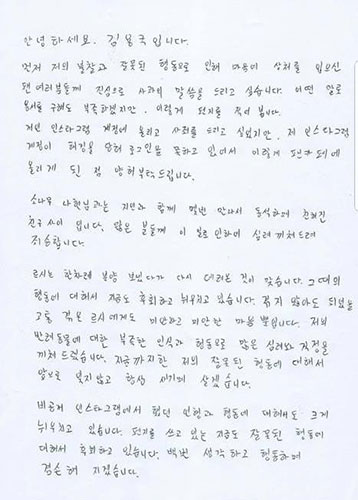 안녕하세요. 김용국입니다.
먼저 저의 불찰과 잘못된 행동으로 인해 마음의 상처를 입으신
팬 여러분들께 진심으로 사과의 말씀을 드리고 싶습니다. 어떤 말로
용서를 구해도 부족하겠지만, 이렇게 편지를 적어 봅니다.
개인 인스타그램 계정에 올리고 사죄를 드리고 싶었지만, 제 인스타그램
계정이 해킹을 당해 로그인을 못하고 있어서 이렇게 팬카페에
올리게 된 점 양해부탁드립니다.
소나무 나현님과는 지인과 함께 몇번 만나서 동석하며 친해진
친구 사이 입니다. 많은 분들께 이 일로 인하여 심려 끼쳐드려
죄송합니다.
르시는 한차례 분양 보냈다가 다시 데려온 것이 맞습니다. 그때의
행동에 대해서 지금도 후회하고 뉘우치고 있습니다. 겪지 않아도 되었을
고통 겪은 르시에게도 미안하고 미안한 마음뿐입니다. 저의
반려동물에 대한 부족한 인식과 행동으로 많은 심려와 걱정을
끼쳐 드렸습니다. 지금까지한 저의 잘못된 행동에 대해서
앞으로 잊지않고 항상 새기며 살겠습니다.
비공개 인스타그램에서 했던 언행과 행동에 대해서도 크게
뉘우치고 있습니다. 편지를 쓰고 있는 지금도 잘못된 행동에
대해서 후회하고 있습니다. 백번 생각하고 행동하며
겸손해 지겠습니다.